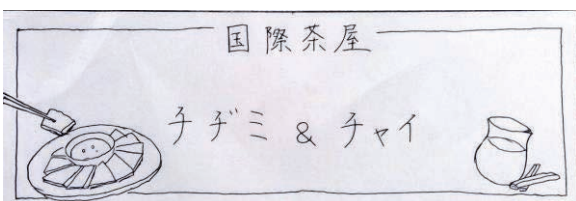 国際茶屋
チヂミ & チャイ